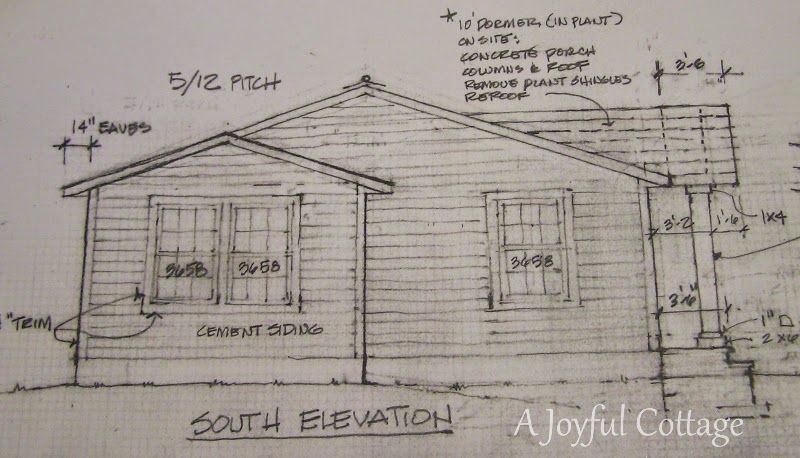 * 10' DORMER (IN PLANT)
ON SITE:
CONCRETE PORCH
COLUMNS & ROOF
REMOVE PLANT SHINGLES
REROOF
3'-6
5/12 PITCH
14" EAVES
1x4
3'-2
1'-6
3658
3658
3658
3'-6"
"TRIM
CEMENT SIDING
1" D
2x6
SOUTH ELEVATION
A Joyful Cottage